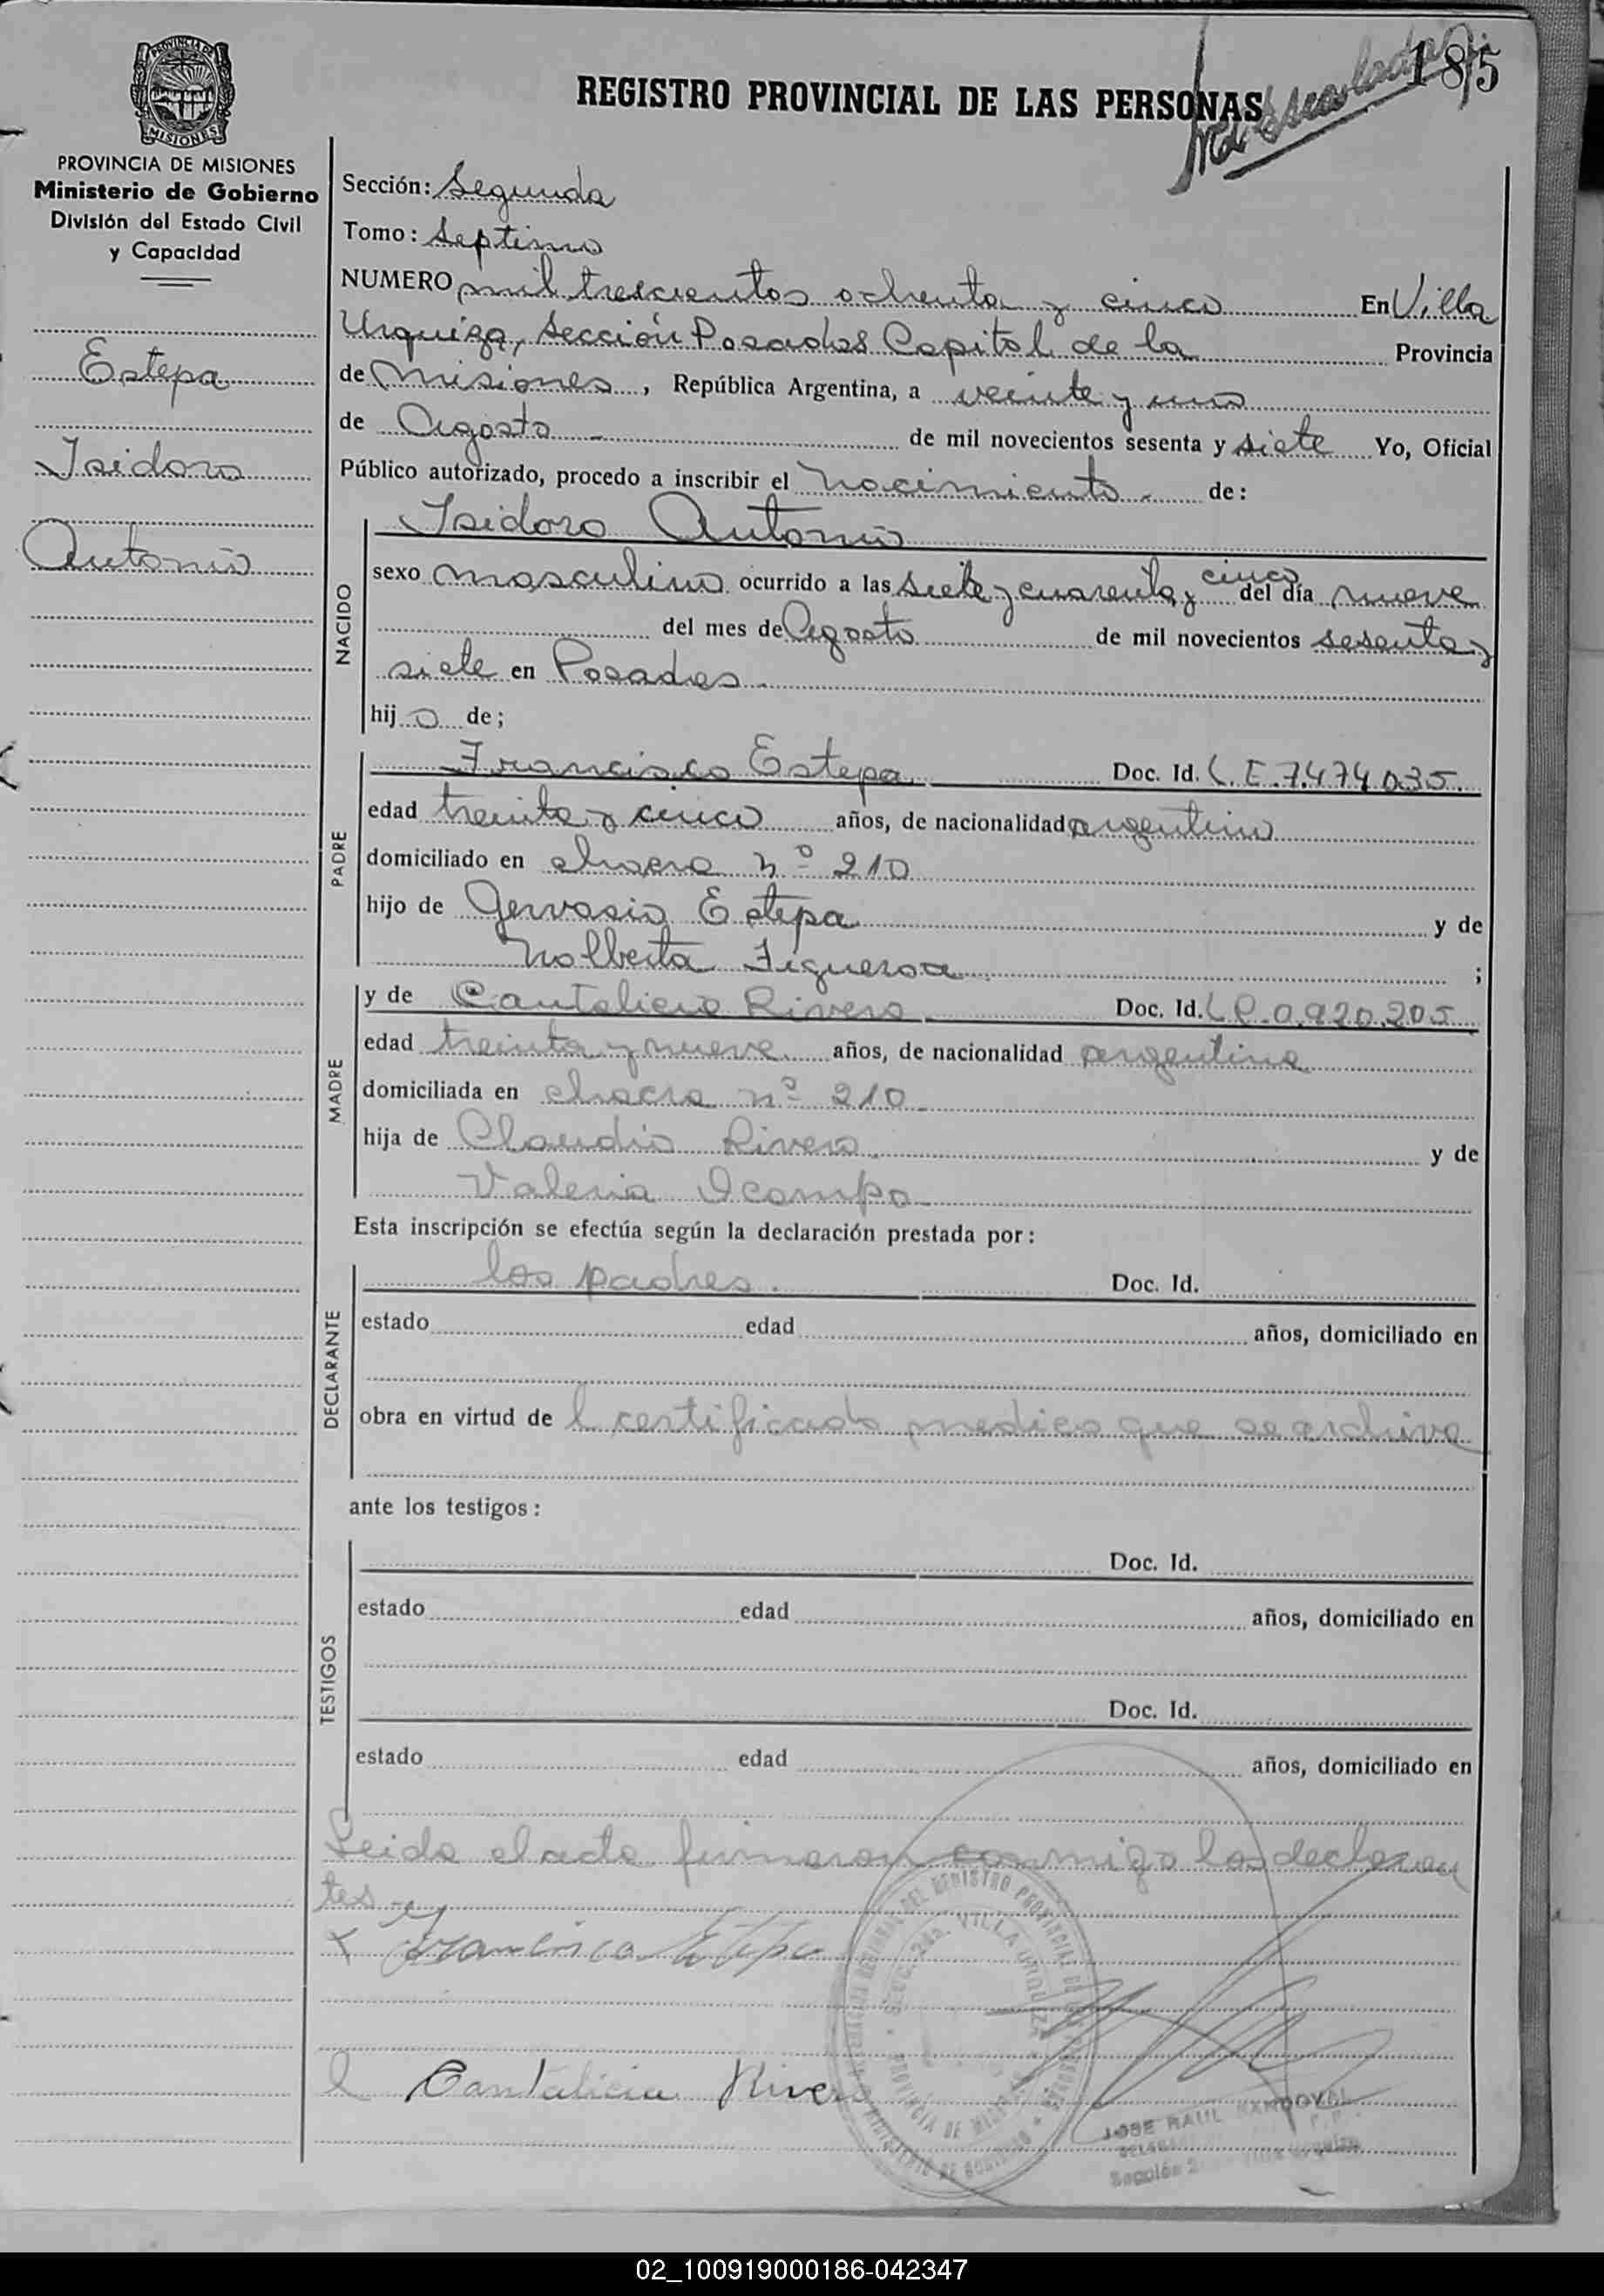 185
REGISTRO PROVINCIAL DE LAS PERSONAS
PROVINCIA DE MISIONES
PROVINCIA DE MISIONES
Ministerio de Gobierno
División del Estado Civil
y Capacidad
Estepa
Isidoro
Antonio
Sección: Segunda
Tomo: Septimo
NUMERO mil trescientos ochenta y cinco En Villa
Urquiza, Sección Posadas Capital de la Provincia
de Misiones, República Argentina, a veinte y uno
de Agosto - de mil novecientos sesenta y siete Yo, Oficial
Público autorizado, procedo a inscribir el nacimiento - de:
NACIDO
Isidoro Antonio
sexo masculino ocurrido a las siete y cuarenta y cinco del día nueve
del mes de Agosto de mil novecientos sesenta y
siete en Posadas.
hijo de;
PADRE
Francisco Estepa Doc. Id. L.E. 7.474.035.
edad treinta y cinco años, de nacionalidad argentino
domiciliado en chacra nº 210
hijo de Gervasio Estepa y de
Nolberta Figueroa ;
MADRE
y de Cantalicia Rivero Doc. Id. L.C. 0.920.205.
edad treinta y nueve años, de nacionalidad argentina
domiciliada en chacra nº 210
hija de Claudio Rivero y de
Valeria Ocampo
Esta inscripción se efectúa según la declaración prestada por:
DECLARANTE
los padres. Doc. Id.
estado edad años, domiciliado en
obra en virtud de l certificado medico que se archiva
ante los testigos:
TESTIGOS
Doc. Id.
estado edad años, domiciliado en
Doc. Id.
estado edad años, domiciliado en
Leida el acta firmaron conmigo los declaran
tes -
Francisco Estepa
Cantalicia Rivero
DEL REGISTRO PROVINCIAL DE LAS PERSONAS
SECC. 2da. VILLA URQUIZA
PROVINCIA DE MISIONES
MINISTERIO DE GOBIERNO
JOSE RAUL SANDOVAL
Sección 2
02_100919000186-042347